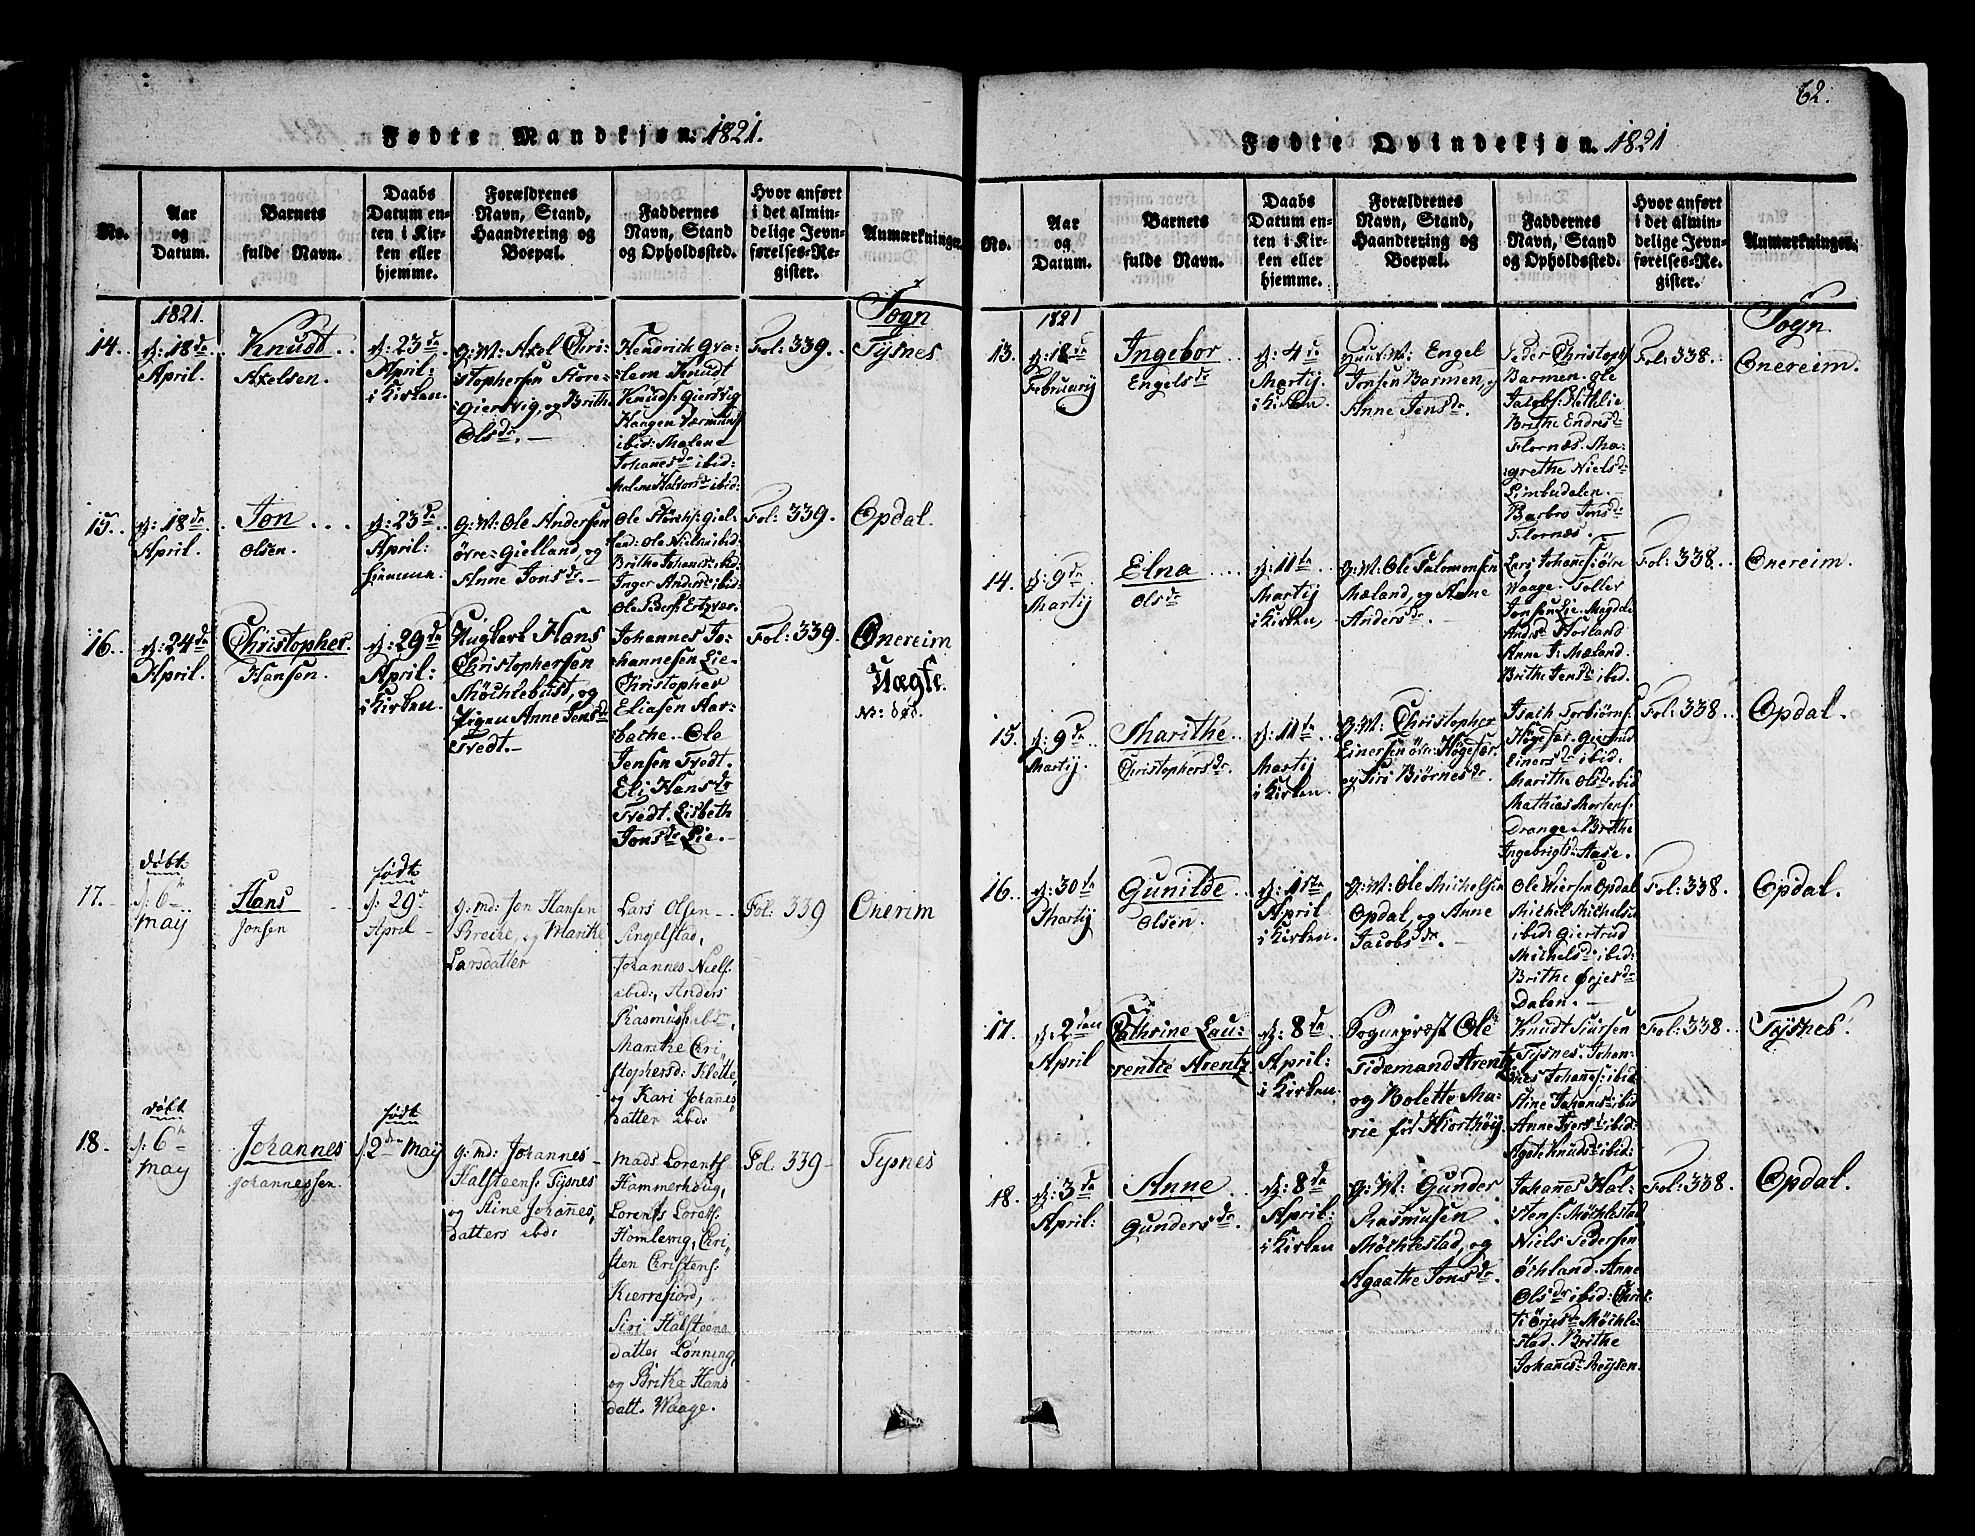 Fødte Mandkjøn. 1821.
No.
Aar
og
Datum.
Barnets
fulde Navn.
Daabs
Datum en-
ten i Kir-
ken eller
hjemme.
Forældrenes
Navn, Stand,
Haandtering og
Boepæl.
Faddernes
Navn, Stand
og Opholdssted.
Hvor anført
i det almin-
delige Jevn-
førelses-Re-
gister.
Anmærkninger.
1821.
Sogn
14.
d: 18de
April.
Knudt
Axelsen.
d: 23de
April:
i Kirken.
g: M: Axel Chri-
stophersen Store-
Giersvig, og Brithe
Olsdr. —
Hendrik Qva-
lem Knudt
Knuds: Giersvig
Haagen Værmunds
ibid: Malene
Johannesdr ibid:
Malene Halvorsdr ibid:
Fol: 339.
Tysnes
15.
d: 18da
April.
Jon
Olsen.
d: 23da
April:
hjemme.
g: M: Ole Andersen
øvre-Gielland, og
Anne Jonsdr. —
Brithe Johansdr ibid:
Inger Andersdr ibid
Fol: 339.
Opdal.
16.
d: 24da
April.
Christopher
Hansen.
d: 29da
April:
i Kirken.
Ungkarl Hans
Christophersen
Møchlebust, og
Pigen Anne Jensdr
Tvedt. —
Johannes Jo-
hannesen Lie.
Christopher
Eliasen Aar-
bache. Ole
Jensen Tvedt.
Eli Hansdr
Tvedt. Lisbeth
Jonsdr Lie. —
Fol: 339.
Onereim
Uægte.
N: død.
17.
døbt
d: 6te
May
Hans
Jonsen
født
d: 29d
April
g: md: Jon Hansen
Breche, og Marithe
Larsdatter
Lars Olsen
Singelstad,
Johannes Niels:
ibid:, Anders
Rasmus: ibdm,
Marithe Chri,,
stophersd: Klette,
og Kari Johanes,
datter ibd:
Fol: 339
Onerim
18.
døbt
d: 6te
May
Johannes
Johannessen.
født
d 2den May
g: md: Johannes
Halsteens: Tysnes
og Stine Johanes,
datters ibd:
Mads Lorents:
Hammerhoug,
Lorents Lorets:
Homlevig, Chri,,
sten Christens:
Kierrefiord,
Siri Halsteens
datter Lønning,
og Brithe Hans
datt. Waage.
Fol. 339
Tysnes
62.
Fødte Qvindekjøn. 1821
No.
Aar
og
Datum.
Barnets
fulde Navn.
Daabs
Datum en-
ten i Kir-
ken eller
hjemme.
Forældrenes
Navn, Stand,
Haandtering og
Boepæl.
Faddernes
Navn, Stand
og Opholdssted.
Hvor anført
i det almin-
delige Jevn-
førelses-Re-
gister.
Anmærkninger.
1821
Sogn
13.
d: 18da
Februarij
Ingebor
Engelsdr
d: 4da
Martij.
i Kirken.
Engel
Jonsen Barmen, og
Anne Jensdr.
Peder Christophs
Barmen. Ole
Jacobs: Nethlie
Brithe Endresdr
Flornæs. Ma-
grethe Nielsdr
Limbudalen.
Barbro Jonsdr
Flornæs. —
Fol: 338.
Onereim.
14.
d: 9da
Martij
Elna
Olsdr
d: 11ta
Martij
i Kirken,
g: M: Ole Salomonsen
Mæland, og Anne
Andersdr.
Lars Johanes: øvre
Waage. Toller
Jonsen Lie. Magdele
Andsdr Horland
Anne J: Mæland.
Brithe Jensdr ibid.
Fol: 338.
Onereim.
15.
d: 9da
Martij.
Marithe
Christophersdr
d: 11ta
Martij
i Kirken.
g: M: Christopher
Einersen øvre Høgesær.
og Siri Biørnesdr.
Isach Torbiørns:
Høgesær. Giertrud
Einersdr ibid.
Marithe Olsdr ibid
Mathias Mortens:
Drange. Brithe
Ingebrigtsd: Aase.
Fol: 338.
Opdal.
16.
d: 30ta
Martij
Gunilde
Olsen.
d: 1sta
April
i Kirken.
g: M: Ole Michelsen
Opdal, og Anne
Jacobsdr.
Ole Iversen Opdal
Michel Michelsen
ibid: Giertrud
Michelsdr ibid:
Brithe Ørjesdr
Dalen. —
Fol: 338.
Opdal.
17.
d: 2den
April
Cathrine Lau-
rentze Arentz
d: 8da
April:
i Kirken.
Sognepræst Ole
Tidemand Arentz
og Bolette Ma-
rie fød Hiorthøy.
Knudt Siursen
Tysnes. Johan-
nes Johanes: ibid:
Stine Johanesdr ibid
Anne Iversdr ibid:
Agote Knudsdr ibid:
Fol: 338.
Tysnes.
18.
d: 3da
April:
Anne
Gundersdr.
d: 8da
April:
i Kirken
g: M: Gunder
Rasmusen
Møchlestad, og
Agaathe Jonsdr.
Johanes Hal-
stens: Møchlestad
Niels Pedersen
Øchland. Anne
Olsdr ibid: Chris-
ti Ørjesdr Møchle-
stad. Brithe
Johanesdr Reysen.
Fol: 338.
Opdal.